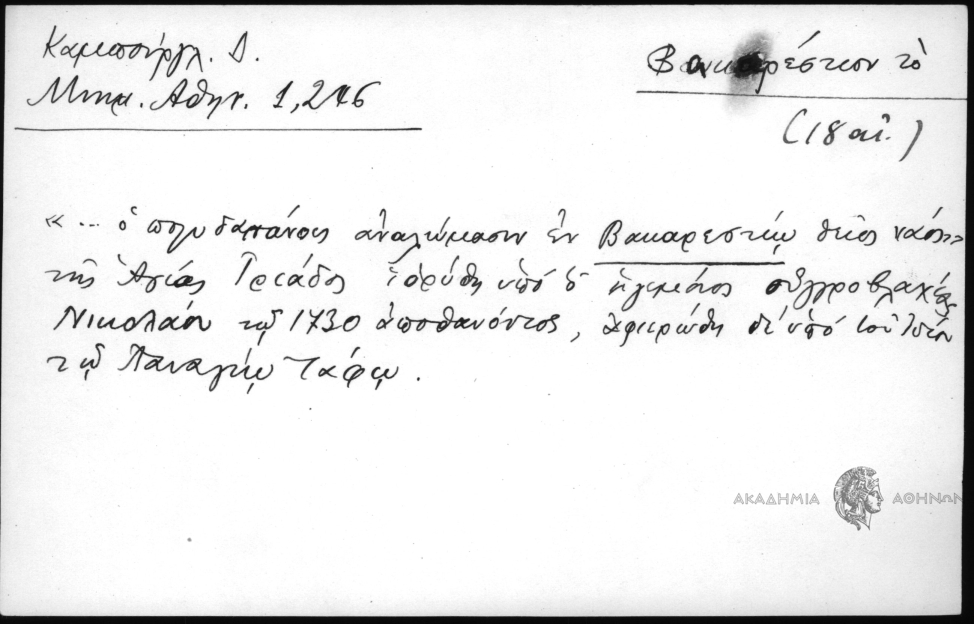 Καμπούργλ. Δ.
Μνημ. Αθην. 1,246
Βακαρέστιον τὸ
(18 αἰ.)
«... ὁ πολυδαπάνοις ἀναλώμασιν ἐν Βακαρεστίῳ θεῖος ναός»
τῆς Ἁγίας Τριάδος ἱδρύθη ὑπὸ ἡγεμόνος οὑγγροβλαχίας
Νικολάου τῷ 1730 ἀποθανόντος, ἀφιερώθη δ' ὑπὸ τοῦ ἰδίου
τῷ Παναγίῳ Τάφῳ.
ΑΚΑΔΗΜΙΑ ΑΘΗΝΩΝ